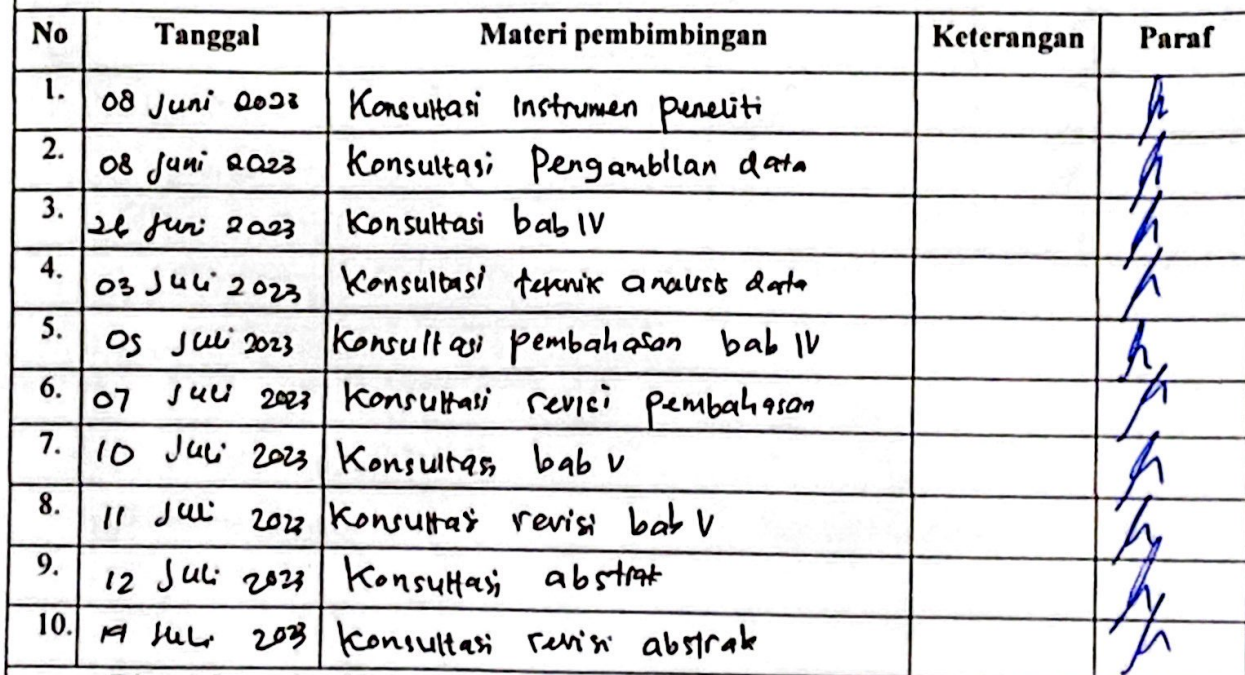 No Tanggal Materi pembimbingan Keterangan Paraf
1. 08 Juni 2023 Konsultasi Instrumen peneliti
2. 08 Juni 2023 Konsultasi Pengambilan data
3. Juni 2023 Konsultasi bab IV
4. 03 Juli 2023 Konsultasi teknik analisis data
5. 05 Juli 2023 Konsultasi pembahasan bab IV
6. 07 Juli 2023 Konsultasi revisi pembahasan
7. 10 Juli 2023 Konsultasi bab V
8. 11 Juli 2023 Konsultasi revisi bab V
9. 12 Juli 2023 Konsultasi abstrak
10. Juli 2023 Konsultasi revisi abstrak